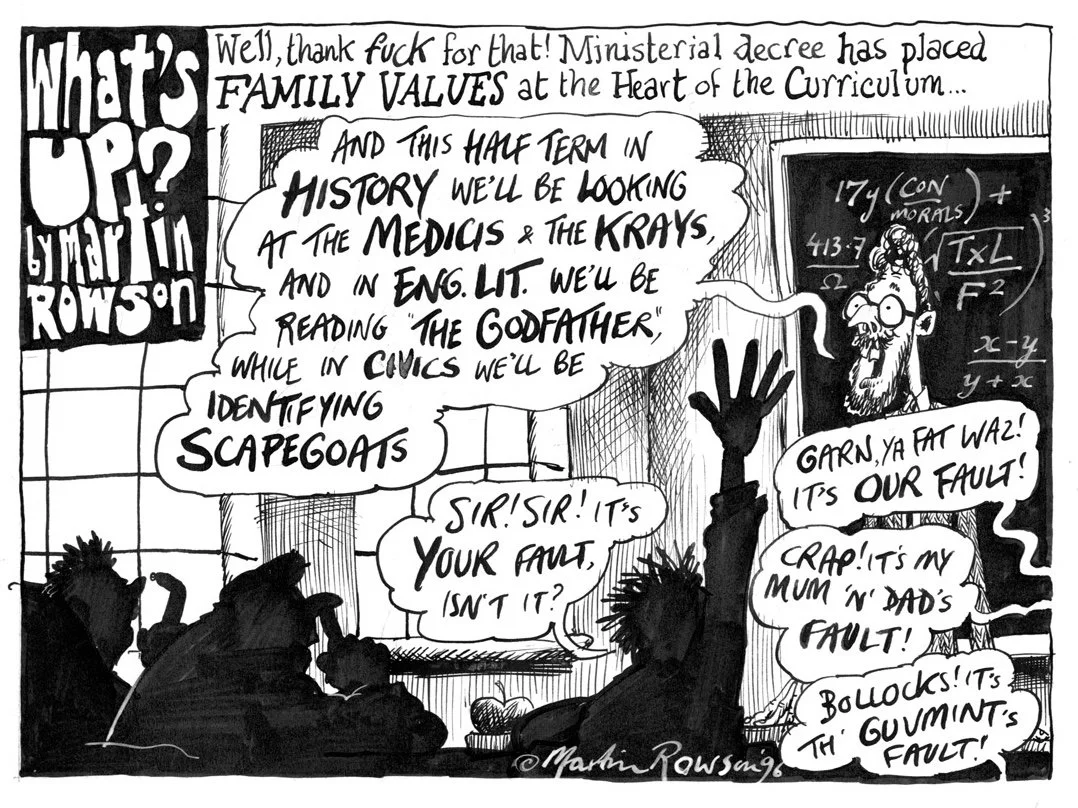 What's
UP?
by Martin
Rowson
Well, thank fuck for that! Ministerial decree has placed
FAMILY VALUES at the Heart of the Curriculum...
AND THIS HALF TERM IN
HISTORY WE'LL BE LOOKING
AT THE MEDICIS & THE KRAYS,
AND IN ENG. LIT. WE'LL BE
READING "THE GODFATHER",
WHILE IN CIVICS WE'LL BE
IDENTIFYING
SCAPEGOATS
17y (CON
MORALS) +
413.7
Ω
√TxL
F²)³
x-y
y+x
SIR! SIR! IT'S
YOUR FAULT,
ISN'T IT?
GARN, YA FAT WAZ!
IT'S OUR FAULT!
CRAP! IT'S MY
MUM 'N' DAD'S
FAULT!
BOLLOCKS! IT'S
TH' GUVMINT'S
FAULT!
© Martin Rowson 96